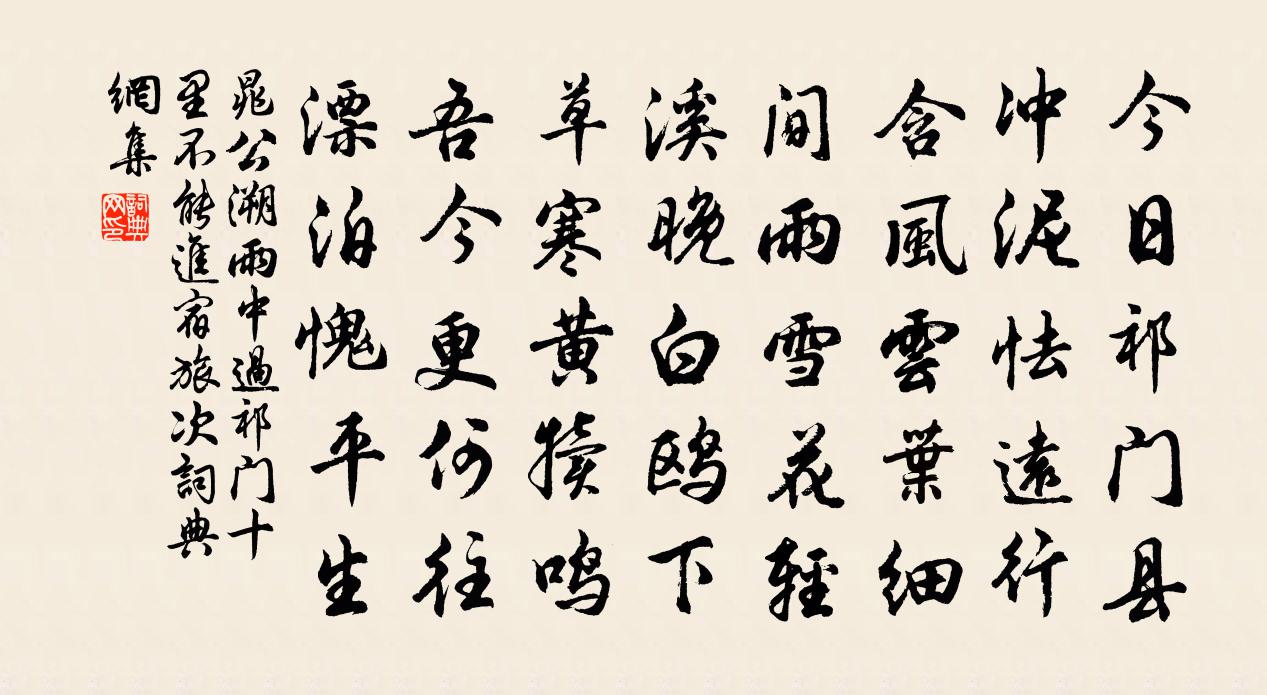 今日祁门县
冲泥怯遠行
含風雲葉细
间雨雪花輕
溪晚白鸥下
草寒黄犊鸣
吾今更何往
漂泊愧平生
晁公溯雨中過祁门十
里不能進宿旅次詞典
網集
詞典
网印